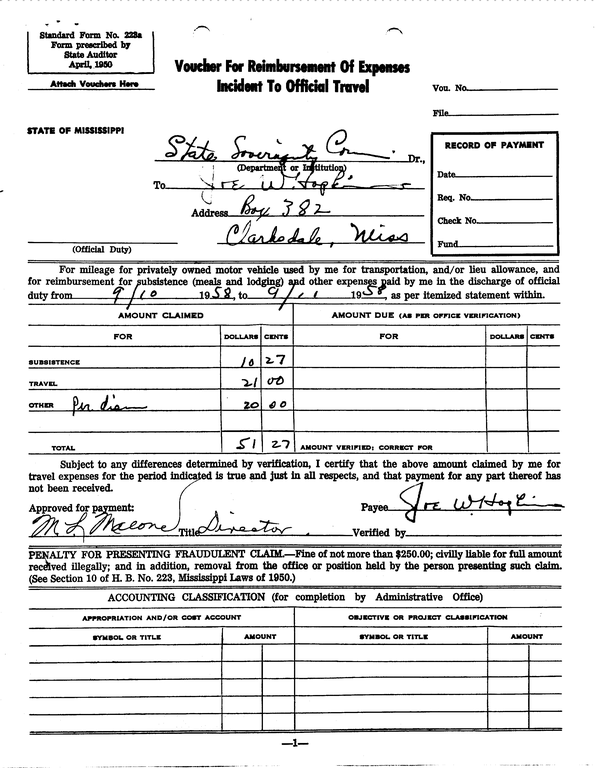 Standard Form No. 223a
Form prescribed by
State Auditor
April, 1950
Attach Vouchers Here
Voucher For Reimbursement Of Expenses
Incident To Official Travel
Vou. No.
File
STATE OF MISSISSIPPI
State Sovereignty Com Dr.,
(Department or Institution)
To Joe W. Hopkins
Address Box 382
Clarksdale, Miss
(Official Duty)
RECORD OF PAYMENT
Date
Req. No.
Check No.
Fund
For mileage for privately owned motor vehicle used by me for transportation, and/or lieu allowance, and
for reimbursement for subsistence (meals and lodging) and other expenses paid by me in the discharge of official
duty from 9/10 1958, to 9/11 1958, as per itemized statement within.
AMOUNT CLAIMED AMOUNT DUE (AS PER OFFICE VERIFICATION)
FOR DOLLARS CENTS FOR DOLLARS CENTS
SUBSISTENCE 10 27
TRAVEL 21 00
OTHER Per diem 20 00
TOTAL 51 27 AMOUNT VERIFIED; CORRECT FOR
Subject to any differences determined by verification, I certify that the above amount claimed by me for
travel expenses for the period indicated is true and just in all respects, and that payment for any part thereof has
not been received.
Approved for payment: Payee Joe W. Hopkins
M L Malone Title Director Verified by
PENALTY FOR PRESENTING FRAUDULENT CLAIM.—Fine of not more than $250.00; civilly liable for full amount
received illegally; and in addition, removal from the office or position held by the person presenting such claim.
(See Section 10 of H. B. No. 223, Mississippi Laws of 1950.)
ACCOUNTING CLASSIFICATION (for completion by Administrative Office)
APPROPRIATION AND/OR COST ACCOUNT OBJECTIVE OR PROJECT CLASSIFICATION
SYMBOL OR TITLE AMOUNT SYMBOL OR TITLE AMOUNT
—1—